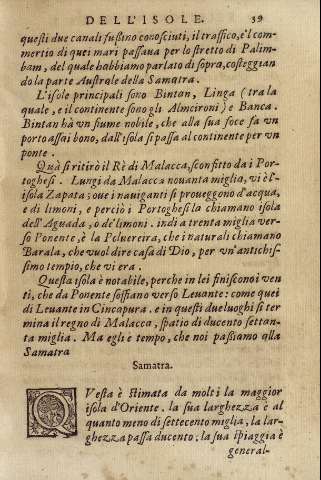 DELL'ISOLE. 39
questi due canali fussino conosciuti, il traffico, e'l com-
mertio di quei mari passaua per lo stretto di Palim-
bam, del quale habbiamo parlato di sopra, costeggian
do la parte Australe della Samatra.
L'isole principali sono Bintan, Linga (tra la
quale, e il continente sono gli Almcironi) e Banca.
Bintan hà vn fiume nobile, che alla sua foce fa vn
porto assai bono, dall'isola si passa al continente per vn
ponte.
Quà si ritirò il Rè di Malacca, sconfitto da i Por-
toghesi. Lungi da Malacca nouanta miglia, vi è l'-
isola Zapata; oue i nauiganti si proueggono d'acqua,
e di limoni, e perciò i Portoghesi la chiamano isola
dell'Aguada, o de' limoni. indi a trenta miglia ver-
so Ponente, è la Poluereira, che i naturali chiamano
Barala, che vuol dire casa di Dio, per vn'antichis-
simo tempio, che vi era.
Questa isola è notabile, perche in lei finisconoi ven
ti, che da Ponente soffiano verso Leuante: come quei
di Leuante in Cincapura. e in questi due luoghi si ter
mina il regno di Malacca, spatio di ducento settan-
ta miglia. Ma egli è tempo, che noi passiamo alla
Samatra
Samatra.
QVesta è stimata da molti la maggior
isola d'Oriente. la sua larghezza è al
quanto meno di settecento miglia, la lar-
ghezza passa ducento; la sua spiaggia è
general-